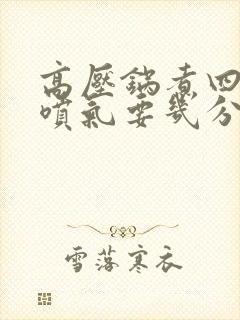 高壓鍋煮四
噴氣要幾分
雪落寒衣